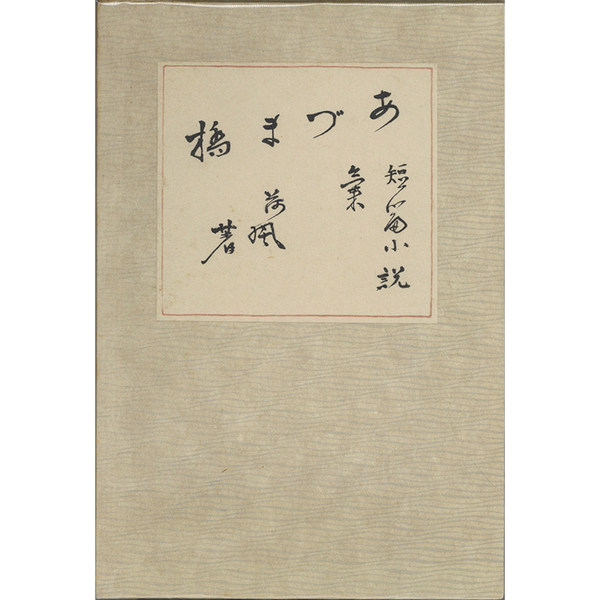 あづま橋
短篇小説集
荷風著